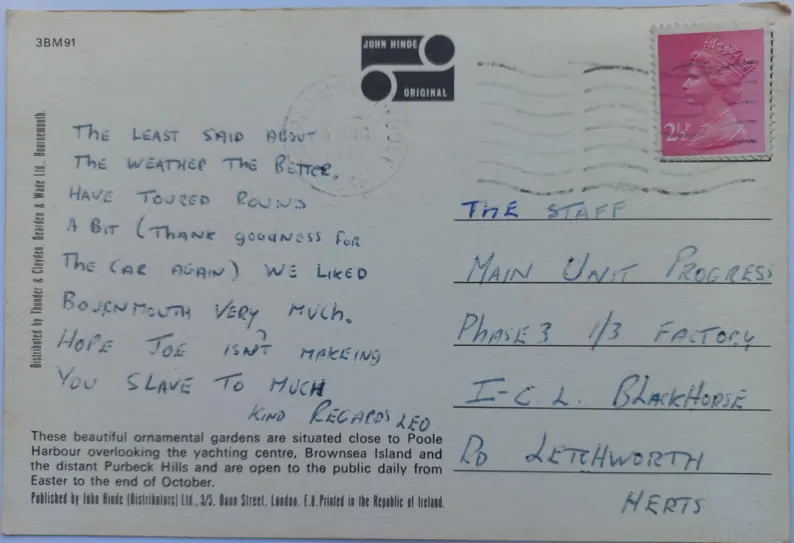 3BM91
JOHN HINDE
ORIGINAL
2½P
THE LEAST SAID ABOUT
THE WEATHER THE BETTER.
HAVE TOURED ROUND
A BIT (THANK GOODNESS FOR
THE CAR AGAIN) WE LIKED
BOURNMOUTH VERY MUCH.
HOPE JOE ISN'T MAKEING
YOU SLAVE TO MUCH
KIND REGARDS LEO
THE STAFF
MAIN UNIT PROGRESS
PHASE 3 1/3 FACTORY
I-C.L. BLACKHORSE
RD LETCHWORTH
HERTS
These beautiful ornamental gardens are situated close to Poole
Harbour overlooking the yachting centre, Brownsea Island and
the distant Purbeck Hills and are open to the public daily from
Easter to the end of October.
Published by John Hinde (Distributors) Ltd., 3/5, Dunn Street, London, E.8. Printed in the Republic of Ireland.
Distributed by Thunder & Clayden, Dearden & Wade Ltd., Bournemouth.